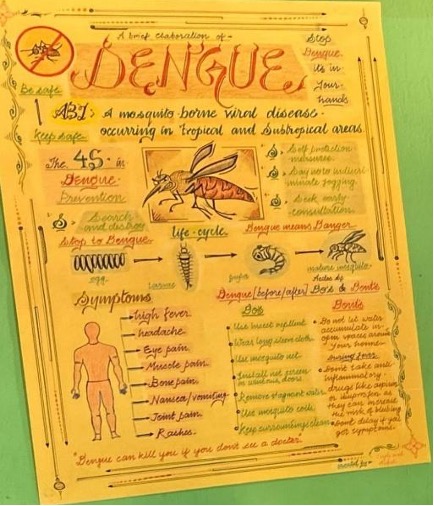 A brief elaboration of-
DENGUE
Stop
Dengue
its in
Your
hands
Be safe
Keep safe
ABT: A mosquito-borne viral disease-
occurring in tropical and Subtropical areas.
The 4S in
Dengue
Prevention
S Search
and destroy
S Self protection
measures.
S Say no to indiscri
minate fogging.
S Seek early
consultation.
Stop to Dengue
life-cycle
Dengue means Danger
egg
larvae
pupa
mature mosquito
Dengue [before/after] Do's & Dont's
Symptoms
High fever
headache
Eye pain
Muscle pain
Bone pain
Nausea/vomiting
Joint pain
Rashes
Dos
Use insect repellent
Wear long sleeve cloth
Use mosquito net
Install net screen
Remove stagnant water
Use mosquito coils
Keep surroundings clean
Donts
Do not let water
accumulate in
open spaces around
Your homes
Dont take anti
inflammatory
drugs like aspirin
or ibuprofen as
they can increase
the risk of bleeding
Dont delay if you
got symptoms
"Dengue can kill you if you don't see a doctor"